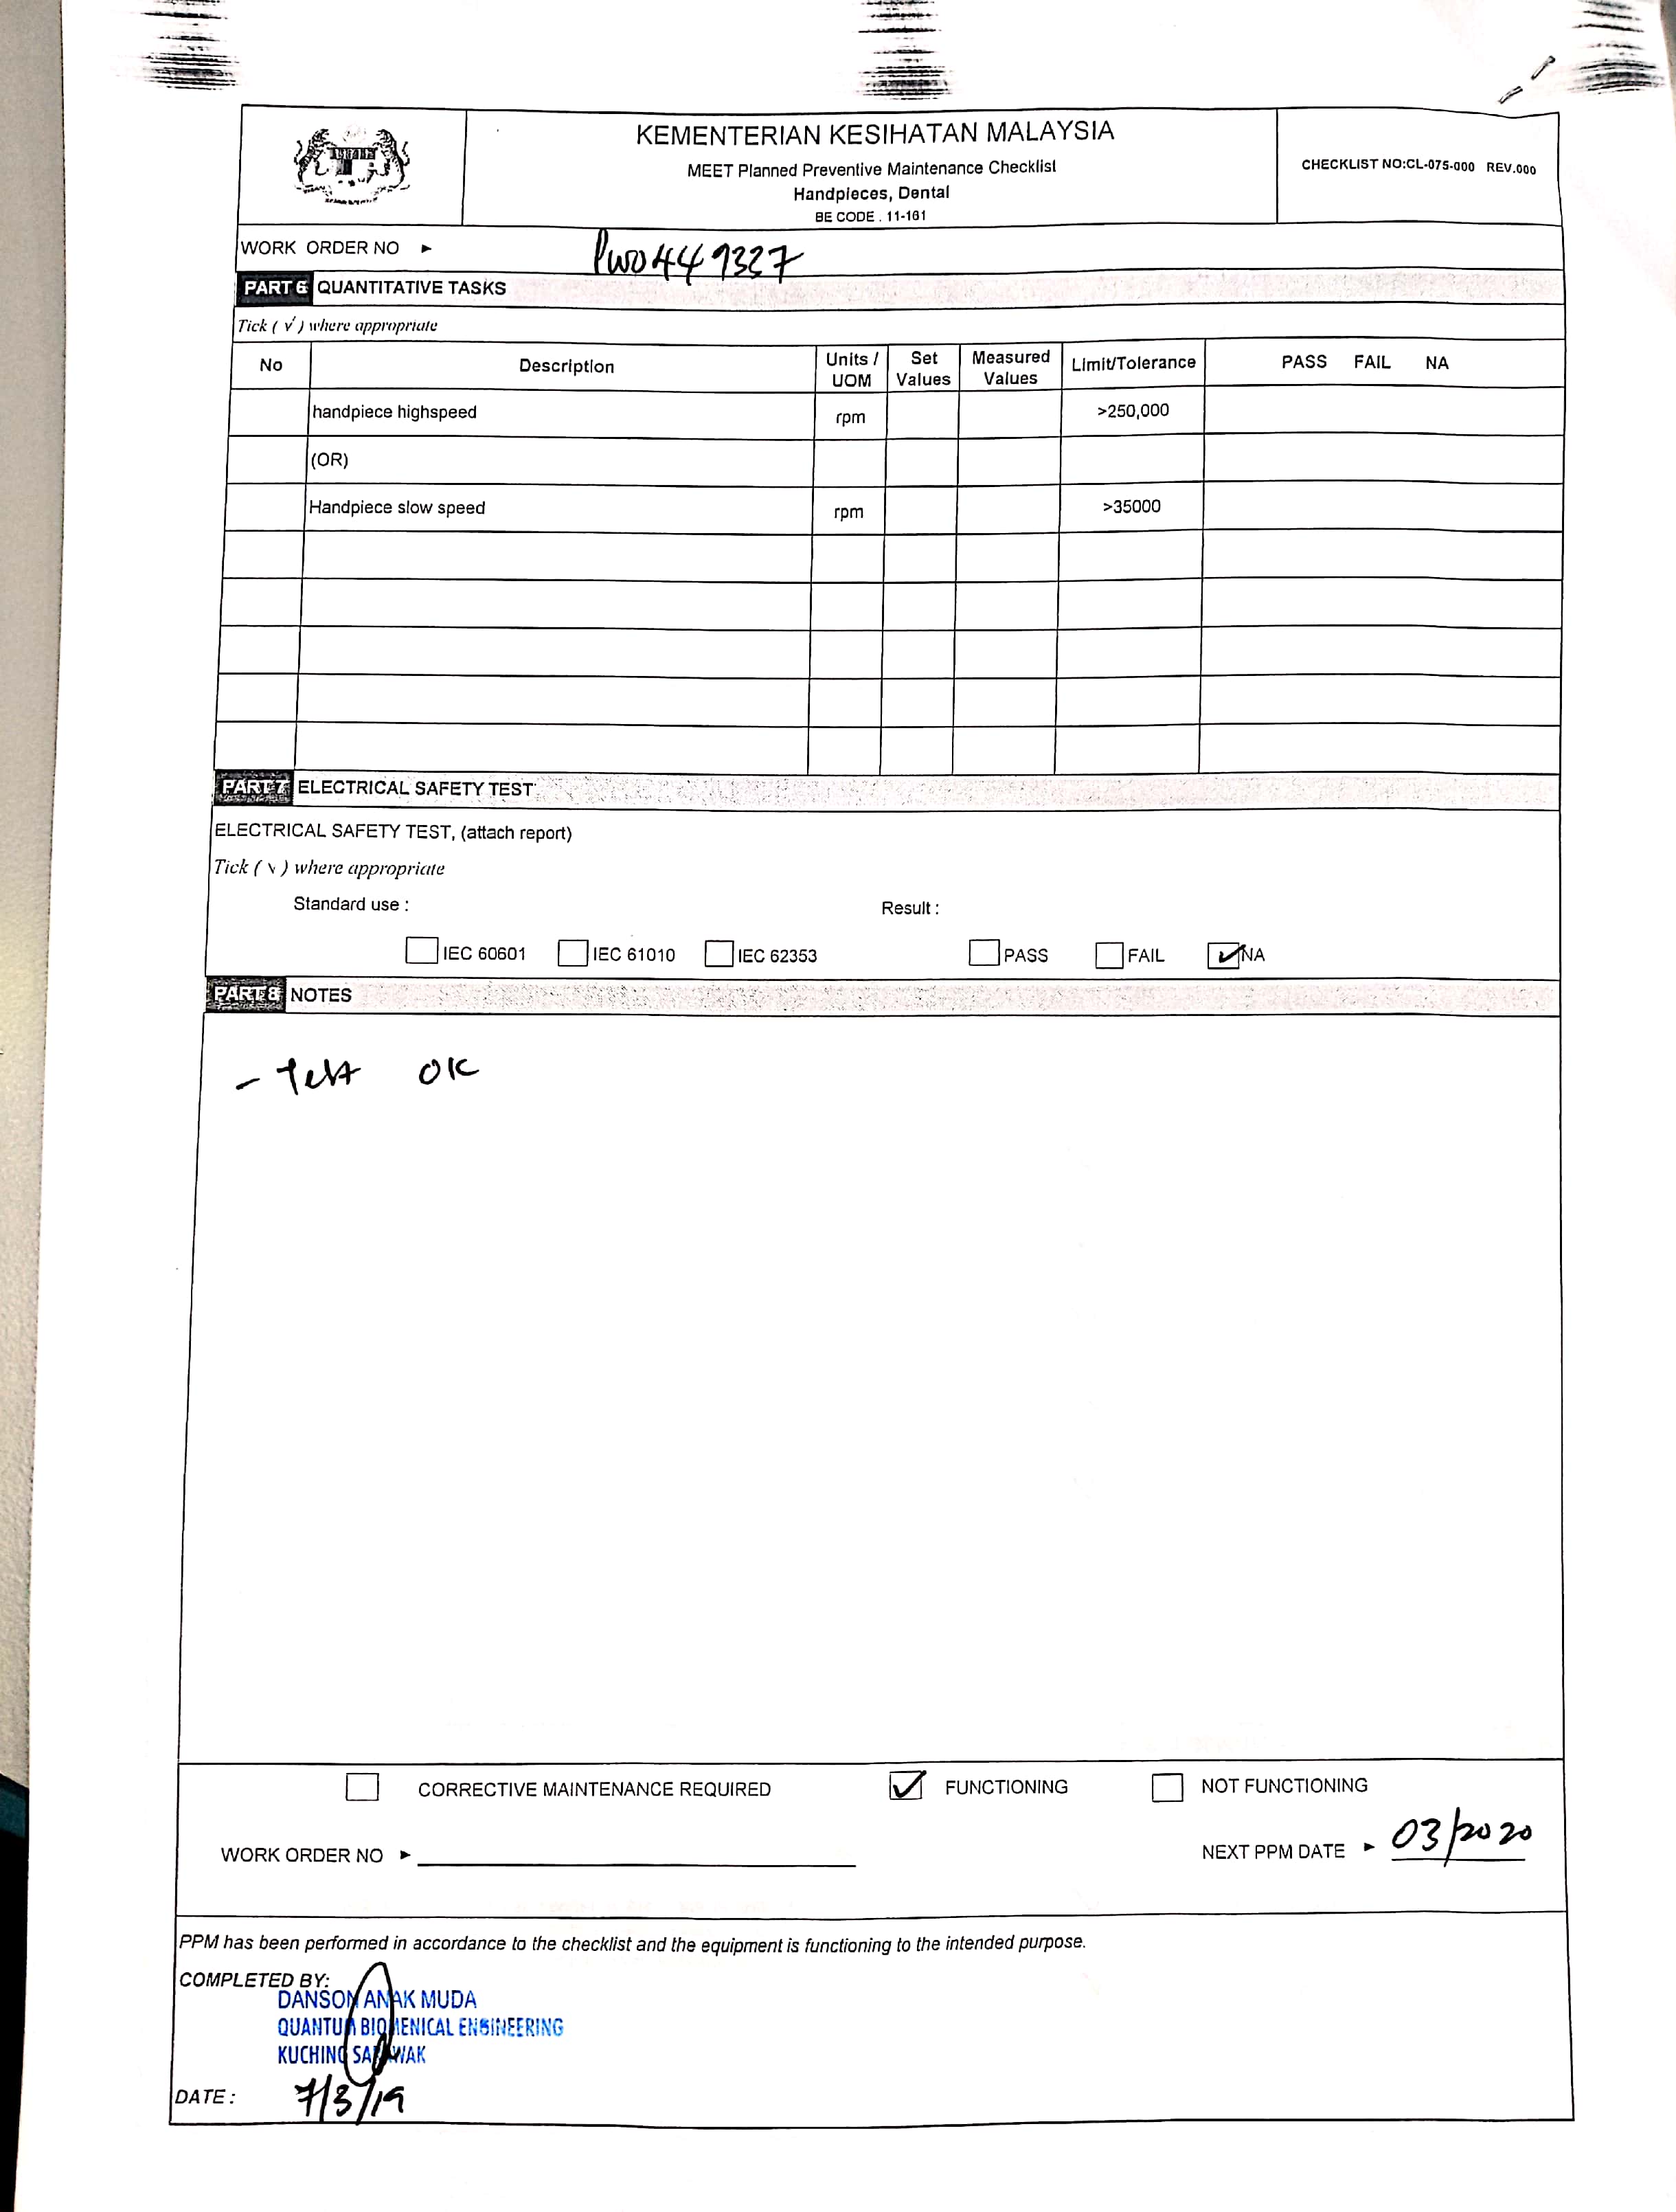 KEMENTERIAN KESIHATAN MALAYSIA
MEET Planned Preventive Maintenance Checklist
Handpieces, Dental
BE CODE . 11-161
CHECKLIST NO:CL-075-000 REV.000
WORK ORDER NO ► PWO449327
PART 6 QUANTITATIVE TASKS
Tick ( √ ) where appropriate
No Description Units / UOM Set Values Measured Values Limit/Tolerance PASS FAIL NA
handpiece highspeed rpm >250,000
(OR)
Handpiece slow speed rpm >35000
PART 7 ELECTRICAL SAFETY TEST
ELECTRICAL SAFETY TEST, (attach report)
Tick ( √ ) where appropriate
Standard use : Result :
IEC 60601 IEC 61010 IEC 62353 PASS FAIL ✓ NA
PART 8 NOTES
- Test OK
CORRECTIVE MAINTENANCE REQUIRED ✓ FUNCTIONING NOT FUNCTIONING
WORK ORDER NO ► NEXT PPM DATE ► 03/2020
PPM has been performed in accordance to the checklist and the equipment is functioning to the intended purpose.
COMPLETED BY:
DANSON ANAK MUDA
QUANTUM BIOMENICAL ENGINEERING
KUCHING SARAWAK
DATE : 7/3/19